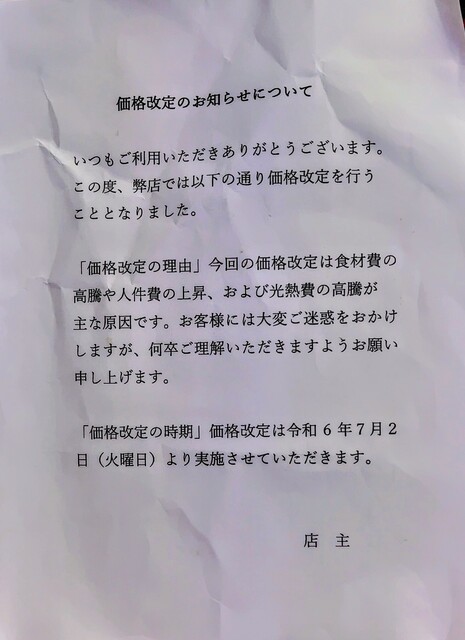 価格改定のお知らせについて
いつもご利用いただきありがとうございます。
この度、弊店では以下の通り価格改定を行う
こととなりました。
「価格改定の理由」今回の価格改定は食材費の
高騰や人件費の上昇、および光熱費の高騰が
主な原因です。お客様には大変ご迷惑をおかけ
しますが、何卒ご理解いただきますようお願い
申し上げます。
「価格改定の時期」価格改定は令和 6 年７月２
日（火曜日）より実施させていただきます。
店　主